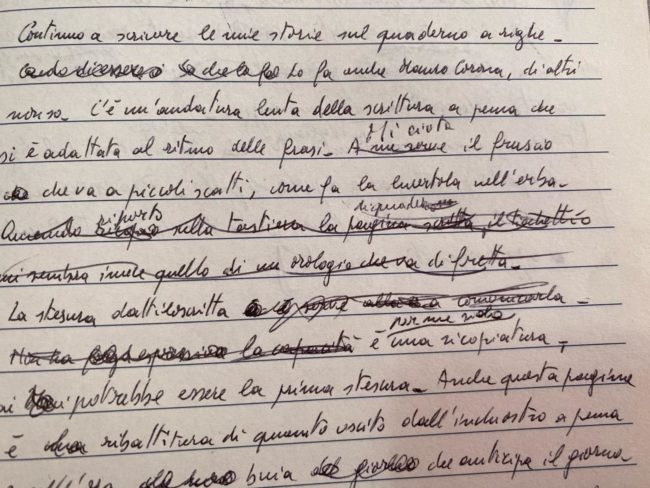 Continuo a scrivere le mie storie sul quaderno a righe.
So che lo fa anche Mauro Corona, di altri
non so. C'è un'andatura lenta della scrittura a penna che
si è adattata al ritmo delle frasi. Mi aiuta il fruscio
che va a piccoli scatti, come fa la lucertola nell'erba.
Quando riporto sulla tastiera la pagina scritta, il ticchettio
mi sembra invece quello di un orologio che va di fretta.
La stesura dattiloscritta
per me solo
è una ricopiatura,
mai potrebbe essere la prima stesura. Anche questa pagina
è ribattitura di quanto uscito dall'inchiostro a penna
buia che anticipa il giorno